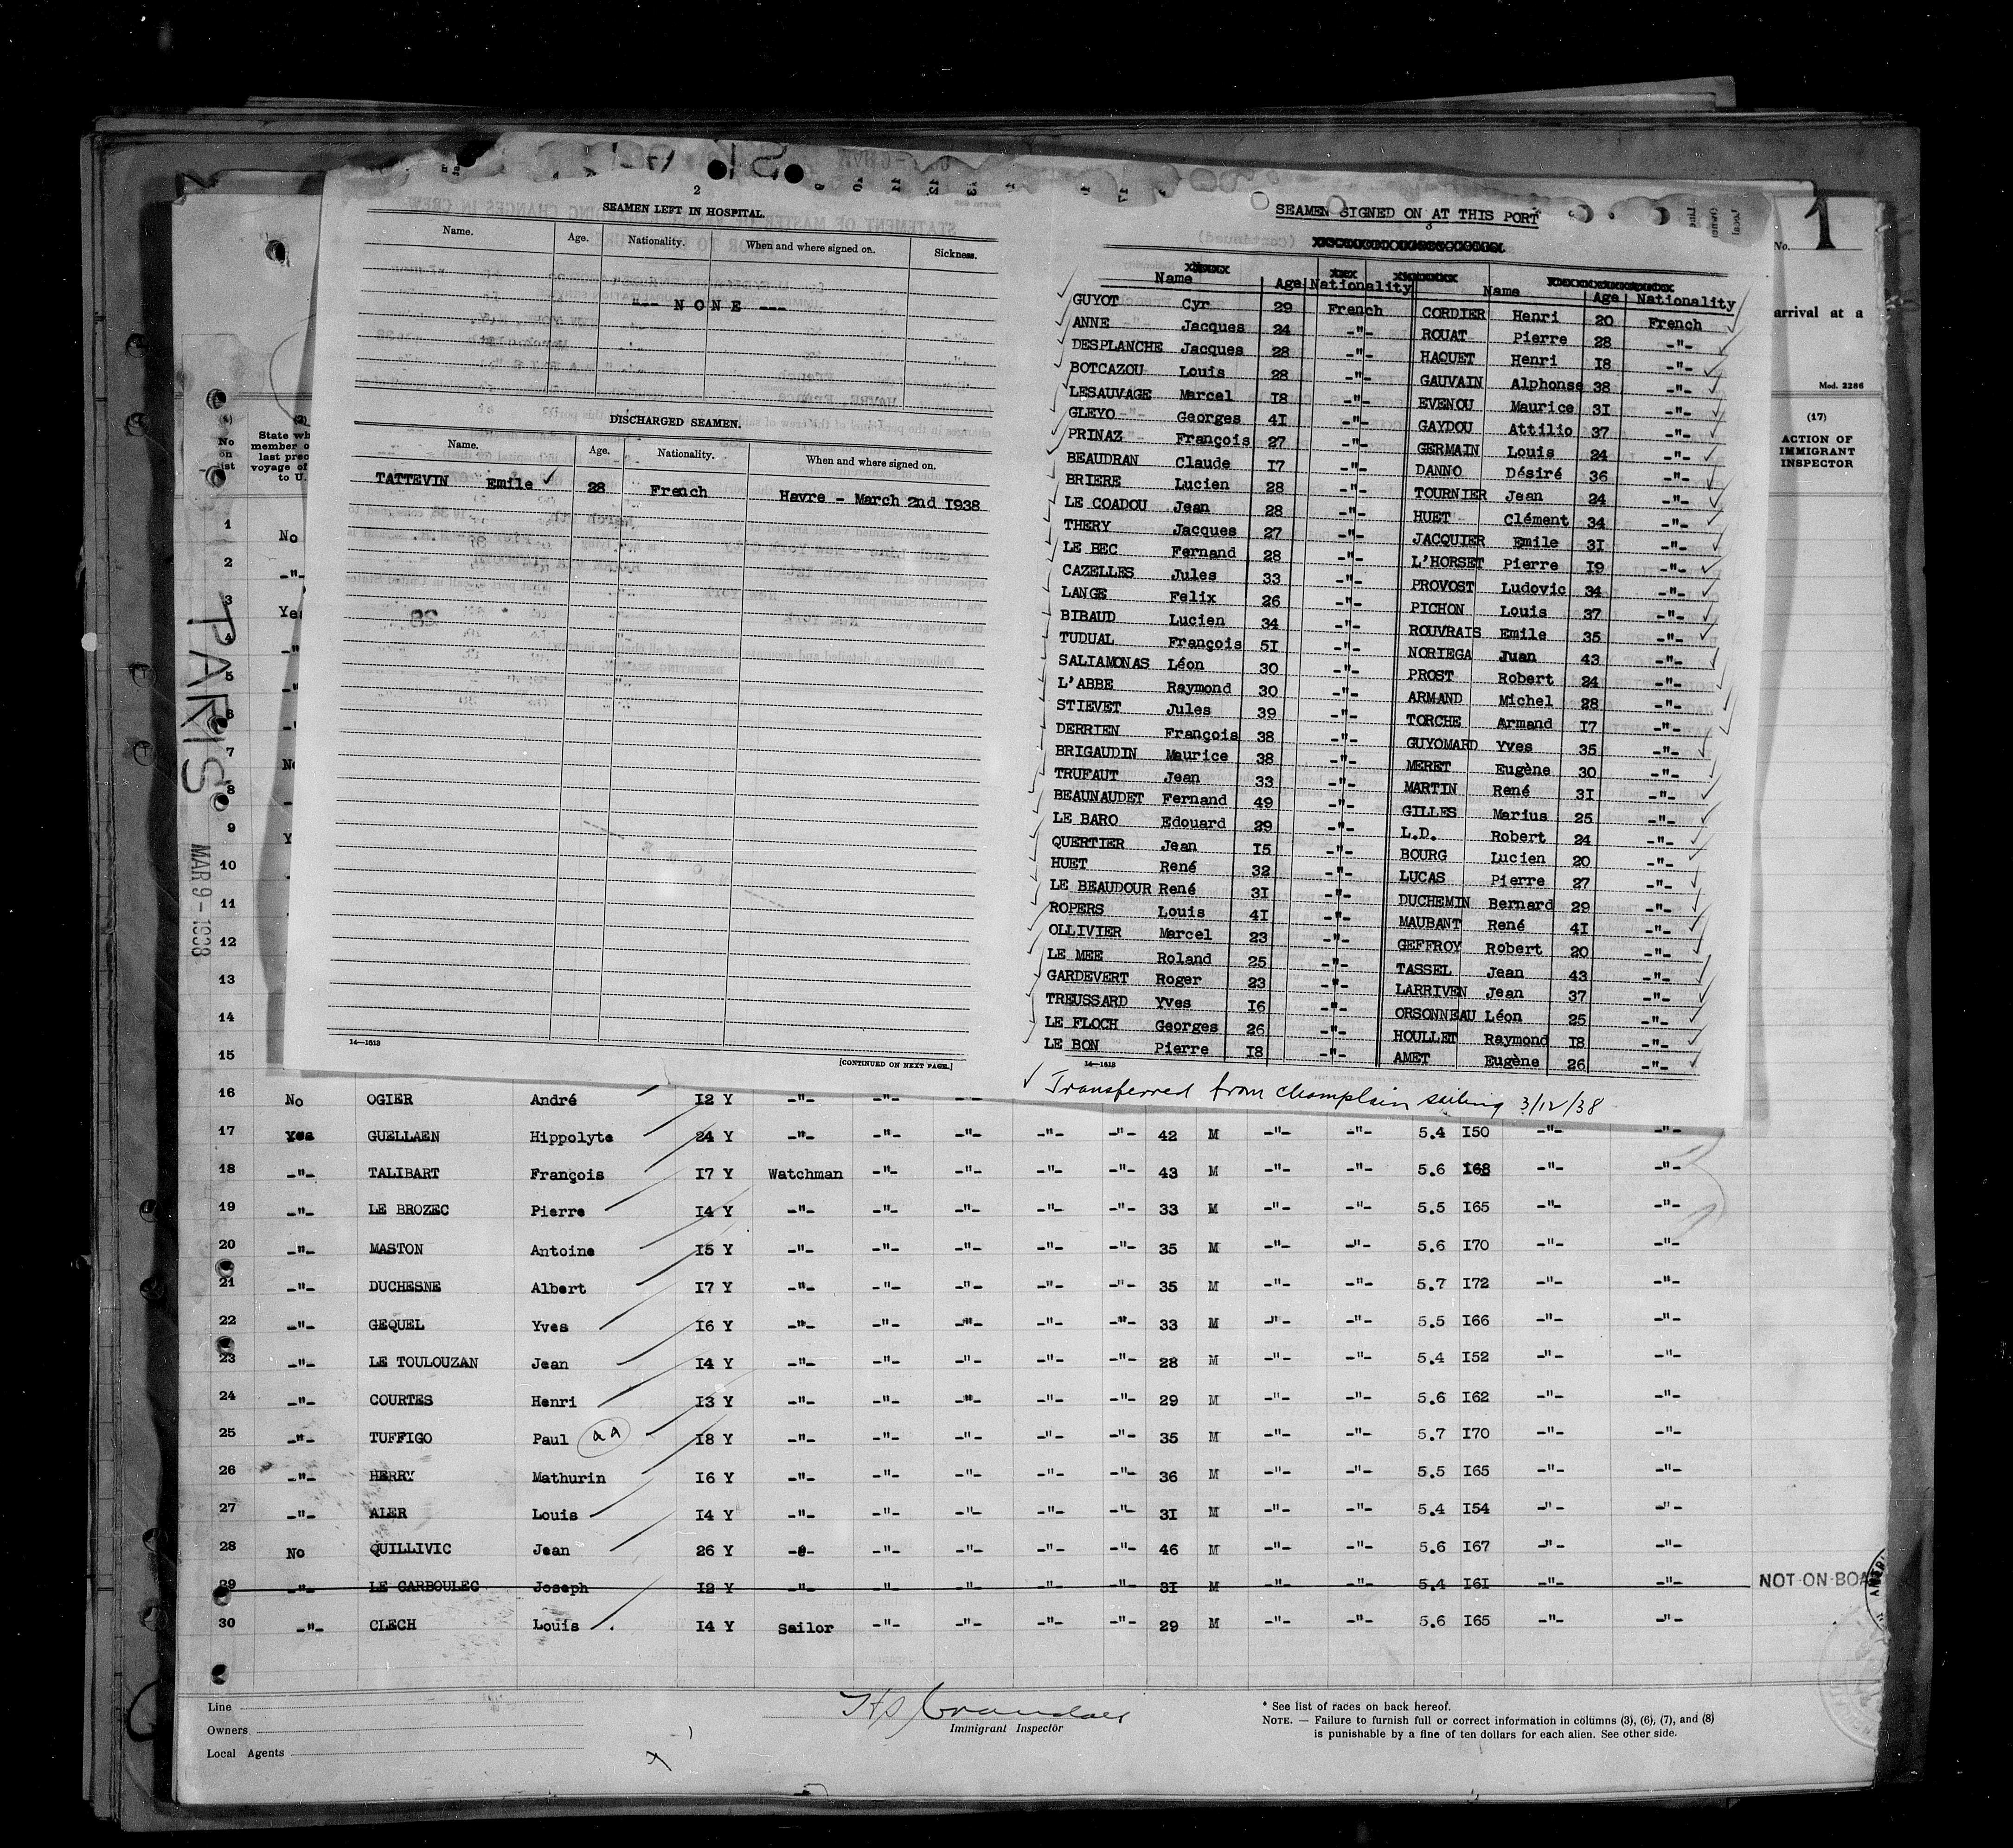 2
SEAMEN LEFT IN HOSPITAL.
Name. Age. Nationality. When and where signed on. Sickness.
"-- N O N E ---
DISCHARGED SEAMEN.
Name. Age. Nationality. When and where signed on.
TATTEVIN Emile ✓ 28 French Havre - March 2nd 1938
14—1613
[CONTINUED ON NEXT PAGE.]
SEAMEN SIGNED ON AT THIS PORT
3
Name Age Nationality Name Age Nationality
GUYOT Cyr 29 French CORDIER Henri 20 French
ANNE Jacques 24 -"- ROUAT Pierre 28 -"-
DESPLANCHE Jacques 28 -"- HAQUET Henri I8 -"-
BOTCAZOU Louis 28 -"- GAUVAIN Alphonse 38 -"-
LESAUVAGE Marcel I8 -"- EVENOU Maurice 3I -"-
GLEYO Georges 4I -"- GAYDOU Attilio 37 -"-
PRINAZ François 27 -"- GERMAIN Louis 24 -"-
BEAUDRAN Claude I7 -"- DANNO Désiré 36 -"-
BRIERE Lucien 28 -"- TOURNIER Jean 24 -"-
LE COADOU Jean 28 -"- HUET Clément 34 -"-
THERY Jacques 27 -"- JACQUIER Emile 3I -"-
LE BEC Fernand 28 -"- L'HORSET Pierre I9 -"-
CAZELLES Jules 33 -"- PROVOST Ludovic 34 -"-
LANGE Felix 26 -"- PICHON Louis 37 -"-
BIBAUD Lucien 34 -"- ROUVRAIS Emile 35 -"-
TUDUAL François 5I -"- NORIEGA Juan 43 -"-
SALIAMONAS Léon 30 -"- PROST Robert 24 -"-
L'ABBE Raymond 30 -"- ARMAND Michel 28 -"-
STIEVET Jules 39 -"- TORCHE Armand I7 -"-
DERRIEN François 38 -"- GUYOMARD Yves 35 -"-
BRIGAUDIN Maurice 38 -"- MERET Eugène 30 -"-
TRUFAUT Jean 33 -"- MARTIN René 3I -"-
BEAUNAUDET Fernand 49 -"- GILLES Marius 25 -"-
LE BARO Edouard 29 -"- L.D. Robert 24 -"-
QUERTIER Jean I5 -"- BOURG Lucien 20 -"-
HUET René 32 -"- LUCAS Pierre 27 -"-
LE BEAUDOUR René 3I -"- DUCHEMIN Bernard 29 -"-
ROPERS Louis 4I -"- MAUBANT René 4I -"-
OLLIVIER Marcel 23 -"- GEFFROY Robert 20 -"-
LE MEE Roland 25 -"- TASSEL Jean 43 -"-
GARDEVERT Roger 23 -"- LARRIVEN Jean 37 -"-
TREUSSARD Yves I6 -"- ORSONNEAU Léon 25 -"-
LE FLOCH Georges 26 -"- HOULLET Raymond I8 -"-
LE BON Pierre I8 -"- AMET Eugène 26 -"-
14—1613
✓ Transferred from Champlain sailing 3/12/38
No. 1
arrival at a
Mod. 2286
(17)
ACTION OF
IMMIGRANT
INSPECTOR
No
on
list
State wh
member o
last prec
voyage of
to U.
PARIS
MAR 9 - 1938
1 No
2 -"-
3 Yes
4 -"
5 -"
6 -"
7 No
8
9 Y
10
11
12
13
14
15
16 No OGIER André I2 Y -"- -"-
17 Yes GUELLAEN Hippolyte 24 Y -"- -"- -"- -"- -"- 42 M -"- -"- 5.4 I50 -"- -"-
18 -"- TALIBART François I7 Y Watchman -"- -"- -"- -"- 43 M -"- -"- 5.6 I68 -"- -"-
19 -"- LE BROZEC Pierre I4 Y -"- -"- -"- -"- -"- 33 M -"- -"- 5.5 I65 -"- -"-
20 -"- MASTON Antoine I5 Y -"- -"- -"- -"- -"- 35 M -"- -"- 5.6 I70 -"- -"-
21 -"- DUCHESNE Albert I7 Y -"- -"- -"- -"- -"- 35 M -"- -"- 5.7 I72 -"- -"-
22 -"- GEQUEL Yves I6 Y -"- -"- -"- -"- -"- 33 M -"- -"- 5.5 I66 -"- -"-
23 -"- LE TOULOUZAN Jean I4 Y -"- -"- -"- -"- -"- 28 M -"- -"- 5.4 I52 -"- -"-
24 -"- COURTES Henri I3 Y -"- -"- -"- -"- -"- 29 M -"- -"- 5.6 I62 -"- -"-
25 -"- TUFFIGO Paul aa I8 Y -"- -"- -"- -"- -"- 35 M -"- -"- 5.7 I70 -"- -"-
26 -"- HERRY Mathurin I6 Y -"- -"- -"- -"- -"- 36 M -"- -"- 5.5 I65 -"- -"-
27 -"- ALER Louis I4 Y -"- -"- -"- -"- -"- 3I M -"- -"- 5.4 I54 -"- -"-
28 No QUILLIVIC Jean 26 Y -"- -"- -"- -"- -"- 46 M -"- -"- 5.6 I67 -"- -"-
29 -"- LE GARBOULEC Joseph I2 Y -"- -"- -"- -"- -"- 3I M -"- -"- 5.4 I6I -"- -"- NOT ON BOA
30 -"- CLECH Louis I4 Y Sailor -"- -"- -"- -"- 29 M -"- -"- 5.6 I65 -"- -"-
Line
Owners
Local Agents
Immigrant Inspector
* See list of races on back hereof.
NOTE. — Failure to furnish full or correct information in columns (3), (6), (7), and (8)
is punishable by a fine of ten dollars for each alien. See other side.